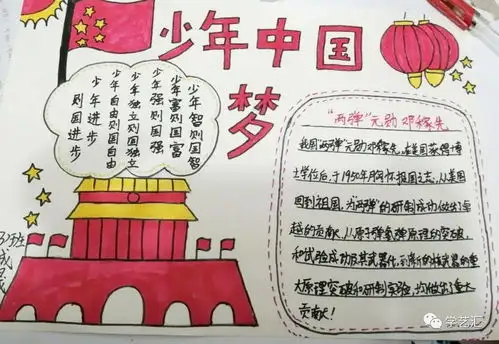 少年中国
梦
少年智则国智
少年富则国富
少年强则国强
少年独立则国独立
少年自由则国自由
少年进步
则国进步
"两弹"元勋 邓稼先
我国"两弹"元勋邓稼先,在美国获得博
士学位后,于1950年胸怀报国之志,从美国
回到祖国,为"两弹"的研制成功做出了卓
越的贡献,从原子弹氢弹原理的突破,
和试验成功及其武器化,到新的核武器的重
大原理突破和研制实验,均做出了重大
贡献!
学艺汇